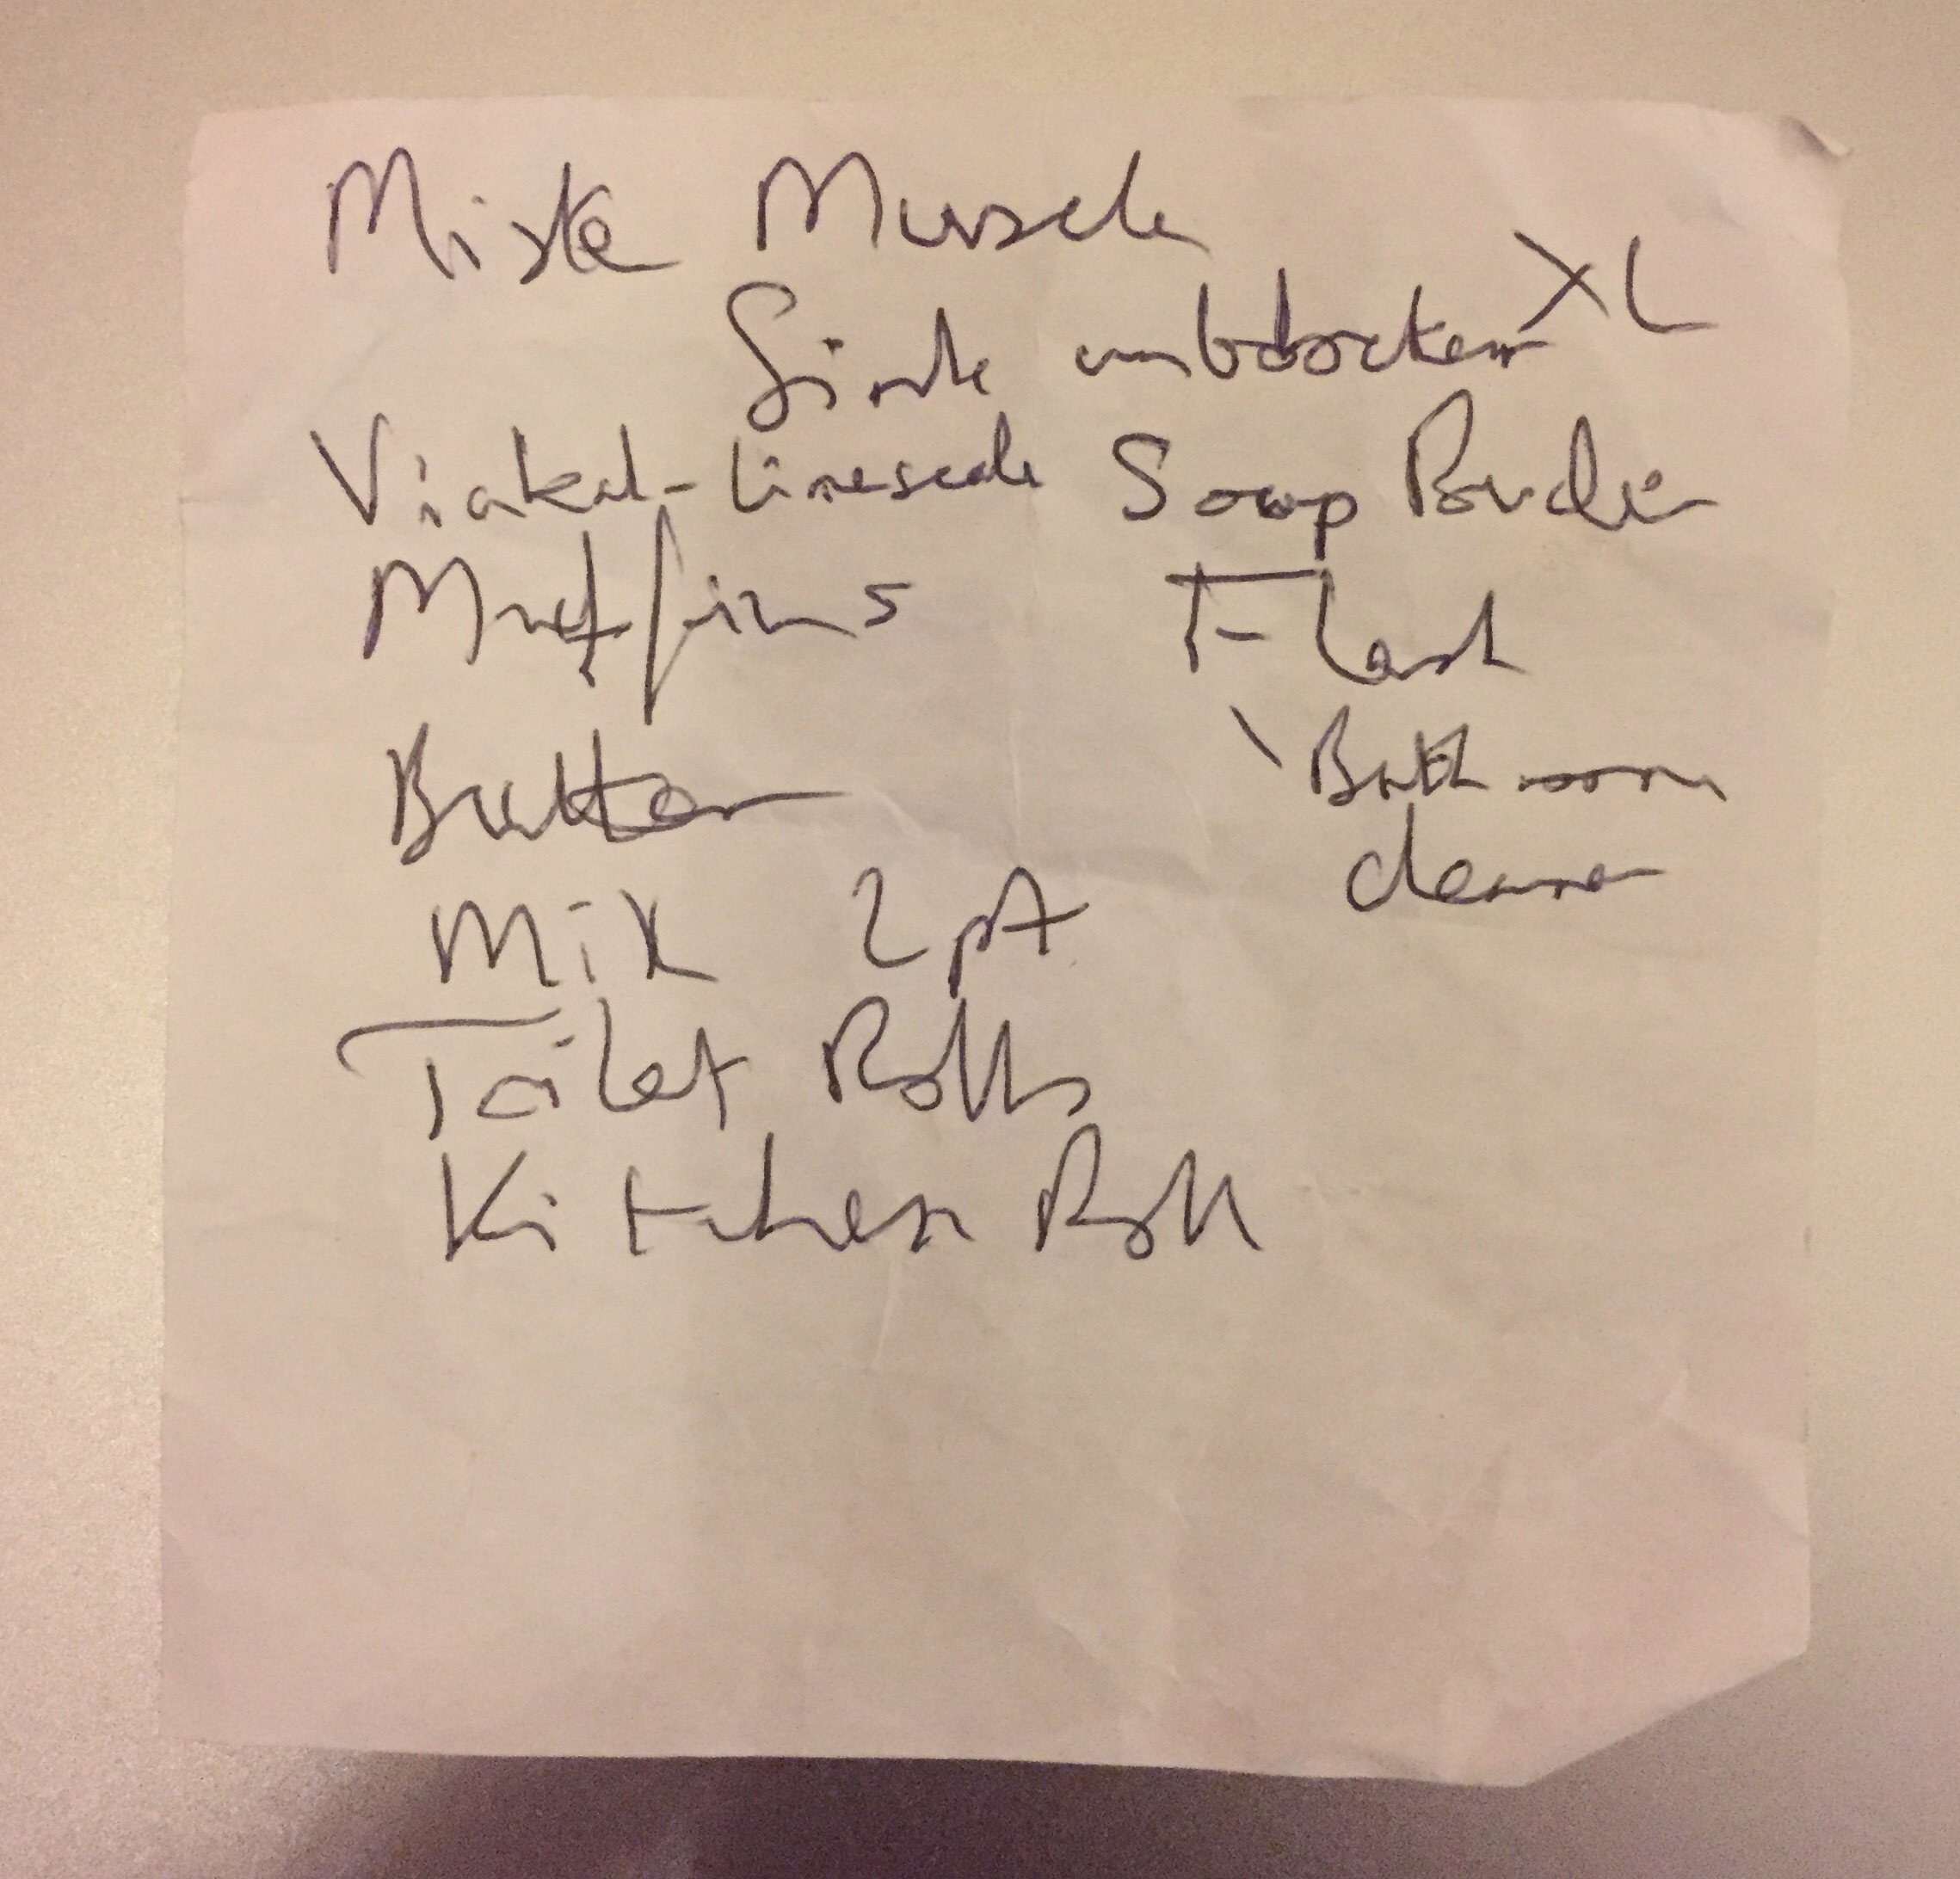 Mister Muscle
Sink unblocker XL
Viakal - limescale
Soap Powder
Muffins
Flash
Bathroom
cleaner
Butter
Milk 2 pt
Toilet Rolls
Kitchen Roll